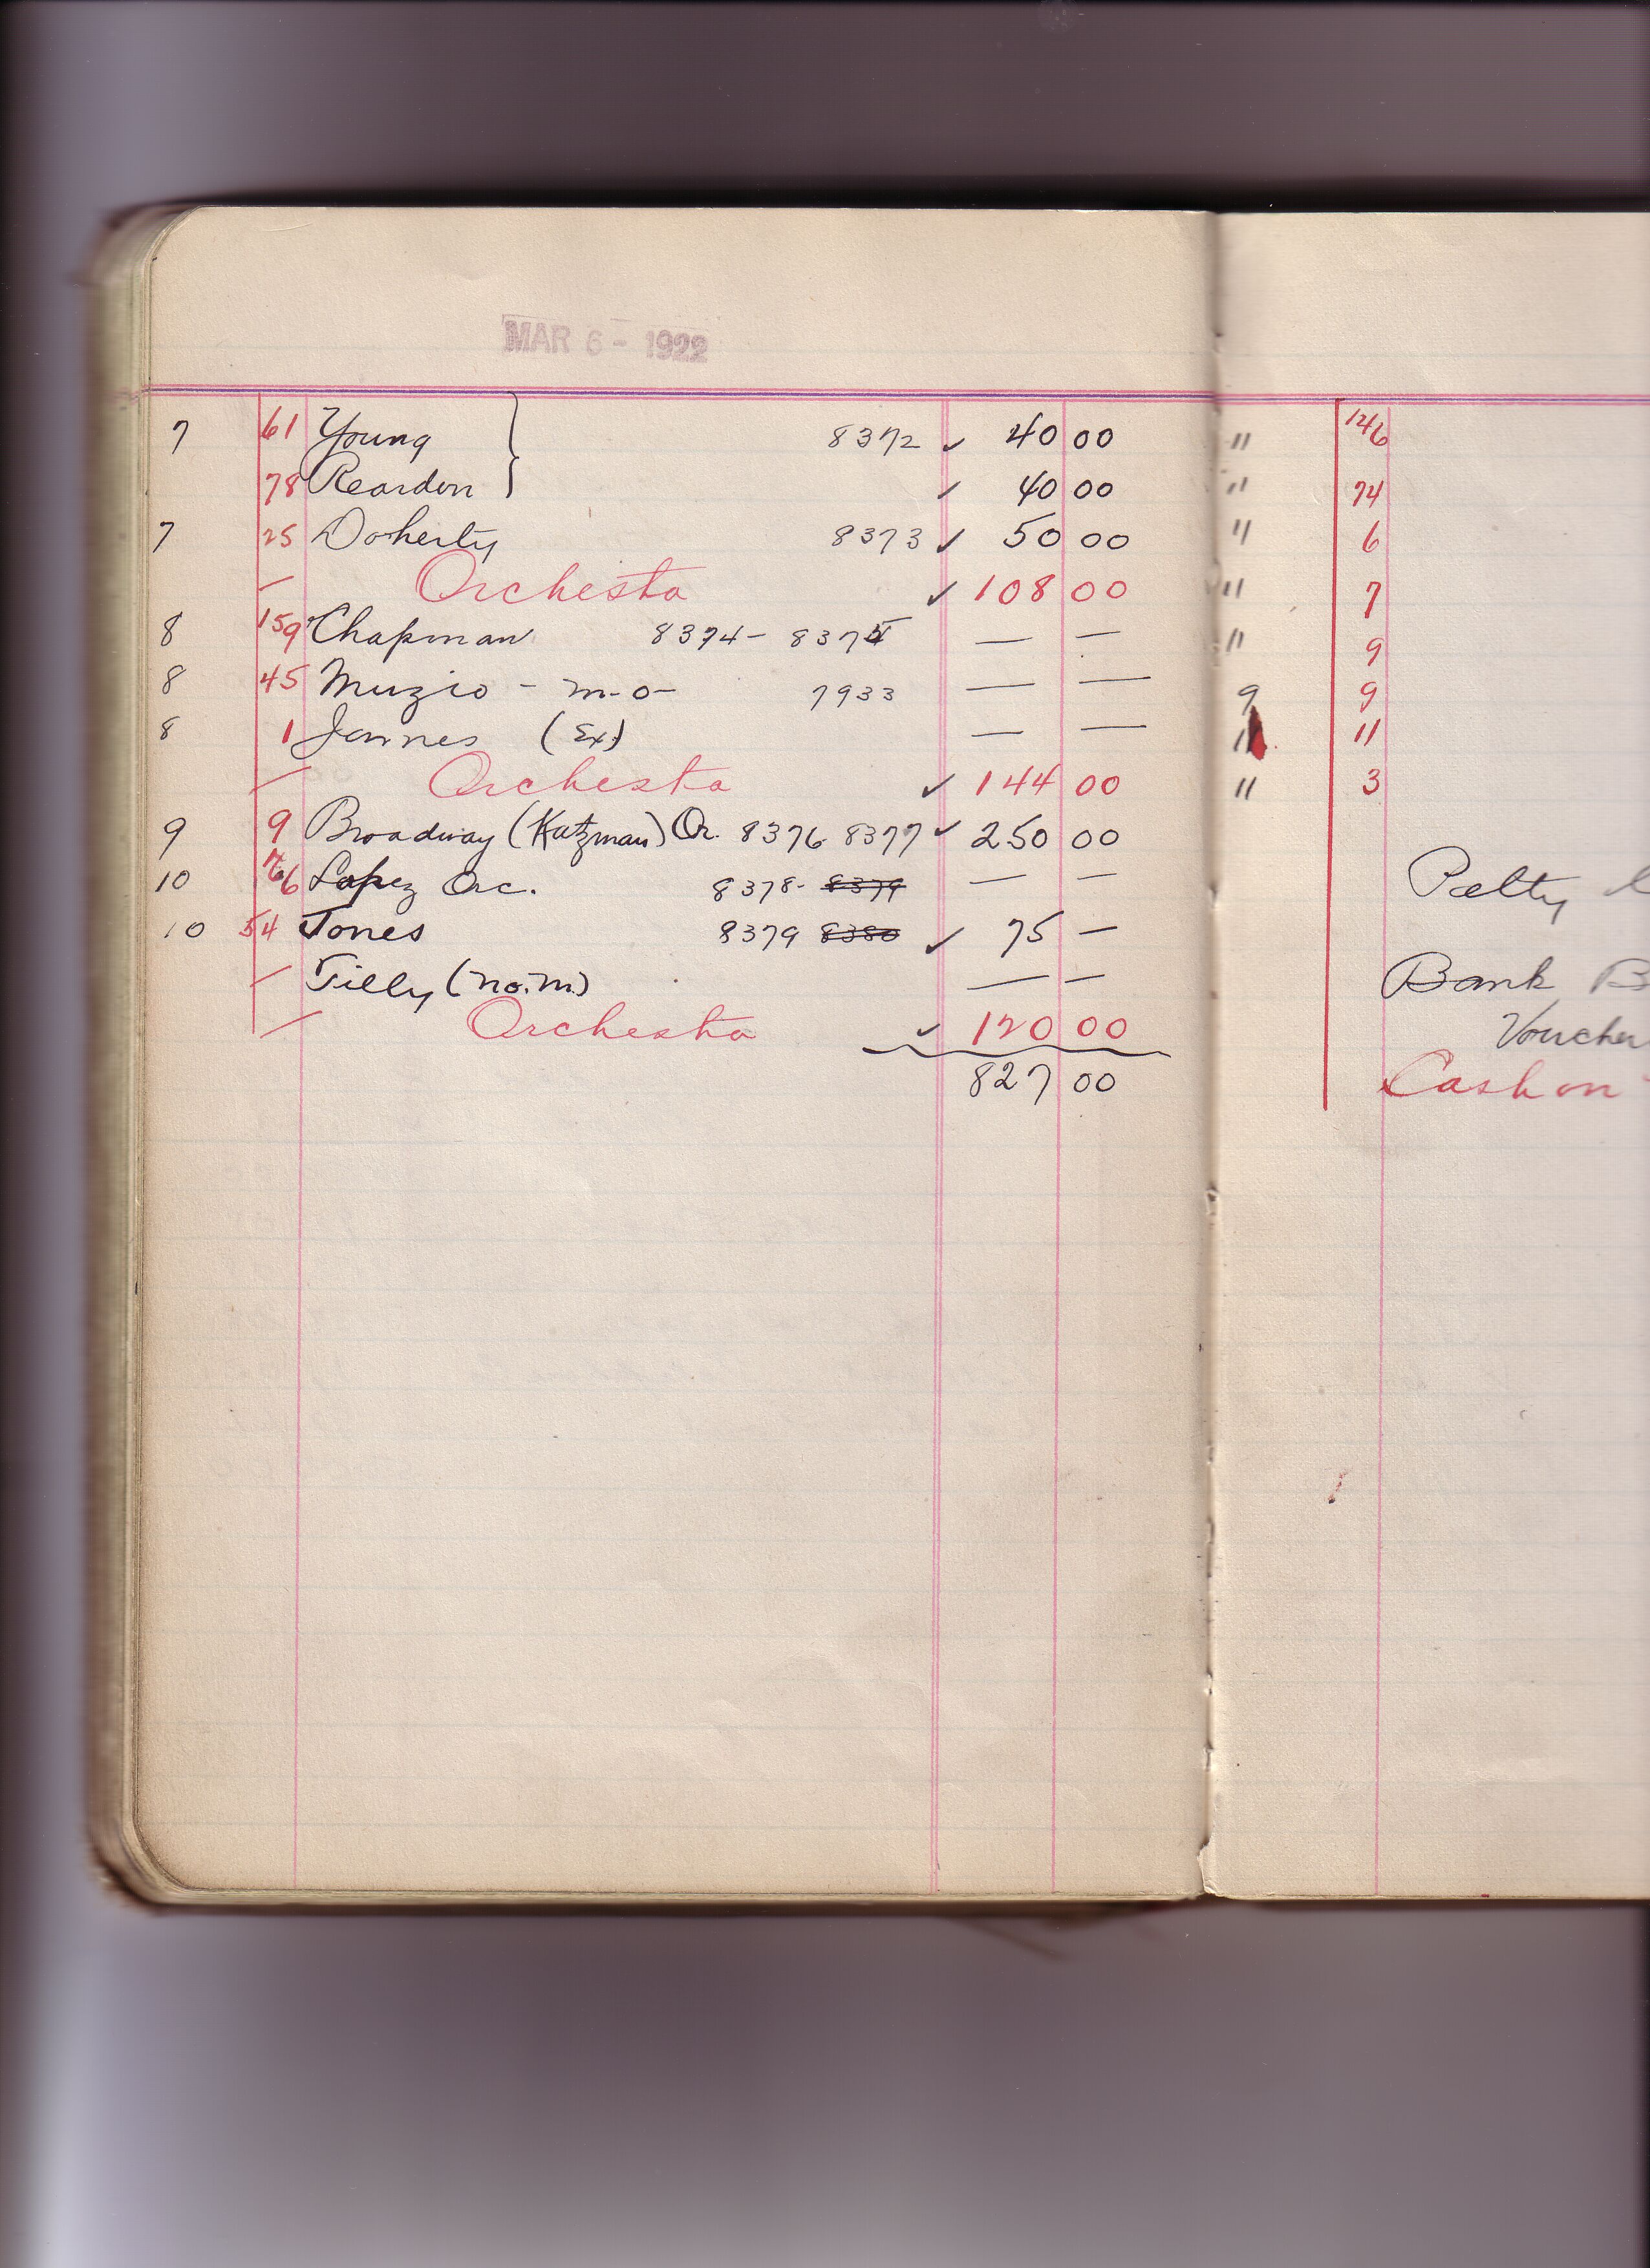 MAR 6 - 1922
7 61 Young 8372 ✓ 40 00
78 Reardon ✓ 40 00
7 25 Doherty 8373 ✓ 50 00
— Orchesta ✓ 108 00
8 159 Chapman 8374 - 8375 — —
8 45 Muzio - m-o- 7933 — —
8 1 Jannes (Ex) — —
— Orchesta ✓ 144 00
9 9 Broadway (Katzman) Or. 8376 8377 ✓ 250 00
10 Lopez Orc. 8378- 8379 — —
10 54 Jones 8379 8380 ✓ 75 —
— Tilly (no.m.) — —
— Orchesta ✓ 120 00
827 00
" 146
" 74
" 6
" 7
" 9
9 9
11
" 3
Petty
Bank B
Voucher
Cash on